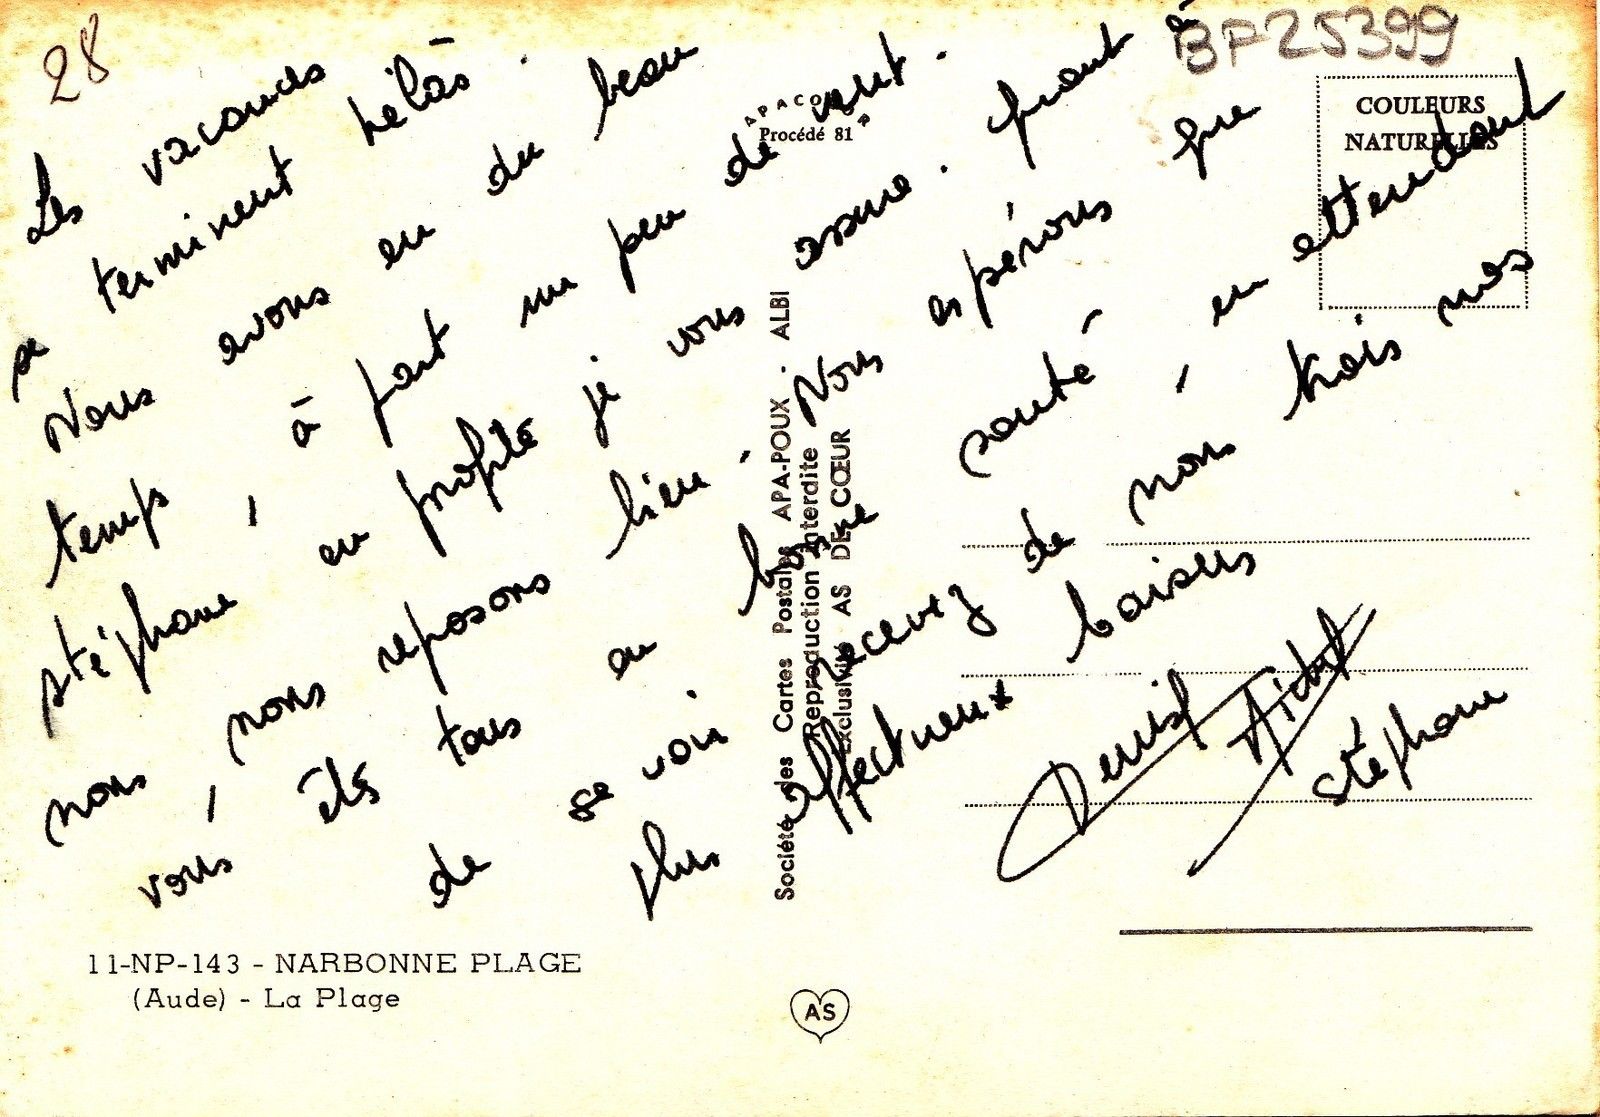 28
BF25399
Les vacances
se terminent hélàs.
Nous avons eu du beau
temps, à part un peu de vent.
Stéphane en profite je vous assure. Quant à
nous, nous reposons bien. Nous espérons que
vous, êtes tous en bonne santé, en attendant
de se voir recevez de nous trois nos
plus affectueux baisers
Denise
Stéphane
APACOLOR
Procédé 81
COULEURS
NATURELLES
Société des Cartes Postales APA-POUX . ALBI
Reproduction interdite
Exclusivité AS DE CŒUR
11-NP-143 - NARBONNE PLAGE
(Aude) - La Plage
AS